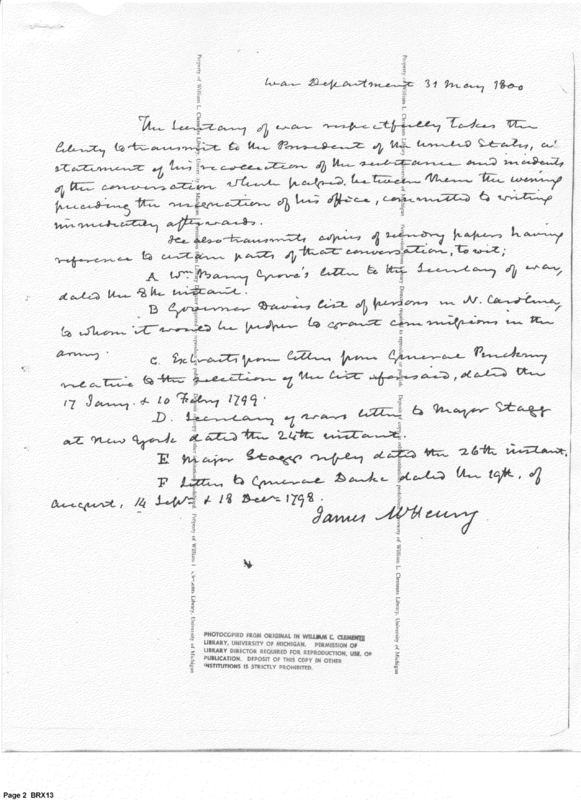 War Department 31 May 1800
The Secretary of war respectfully takes the
liberty to transmit to the President of the United States, a
statement of his recollection of the substance and incidents
of the conversation which passed between them the evening
preceding the resignation of his office, committed to writing
immediately afterwards.
He also transmits copies of sundry papers having
reference to certain parts of that conversation, to wit;
A Wm Barry Grove's letter to the Secretary of war,
dated the 8th instant.
B Governor Davies list of persons in N. Carolina,
to whom it would be proper to grant commissions in the
army.
C. Extracts from letters from General Pinckney
relative to the selection of the list aforesaid, dated the
17 Jany. & 10 Feby 1799.
D. Secretary of wars letter to Major Stagg
at New York dated the 24th instant.
E Major Staggs reply dated the 26th instant.
F Letters to General Darke dated the 19th. of
august, 14 Sepr. & 18 Decr. 1798.
James McHenry
PHOTOCOPIED FROM ORIGINAL IN WILLIAM L. CLEMENTS
LIBRARY, UNIVERSITY OF MICHIGAN. PERMISSION OF
LIBRARY DIRECTOR REQUIRED FOR REPRODUCTION, USE, OR
PUBLICATION. DEPOSIT OF THIS COPY IN OTHER
INSTITUTIONS IS STRICTLY PROHIBITED.
Property of William L. Clements Library, University of Michigan
Property of William L. Clements Library, University of Michigan
Page 2 BRX13